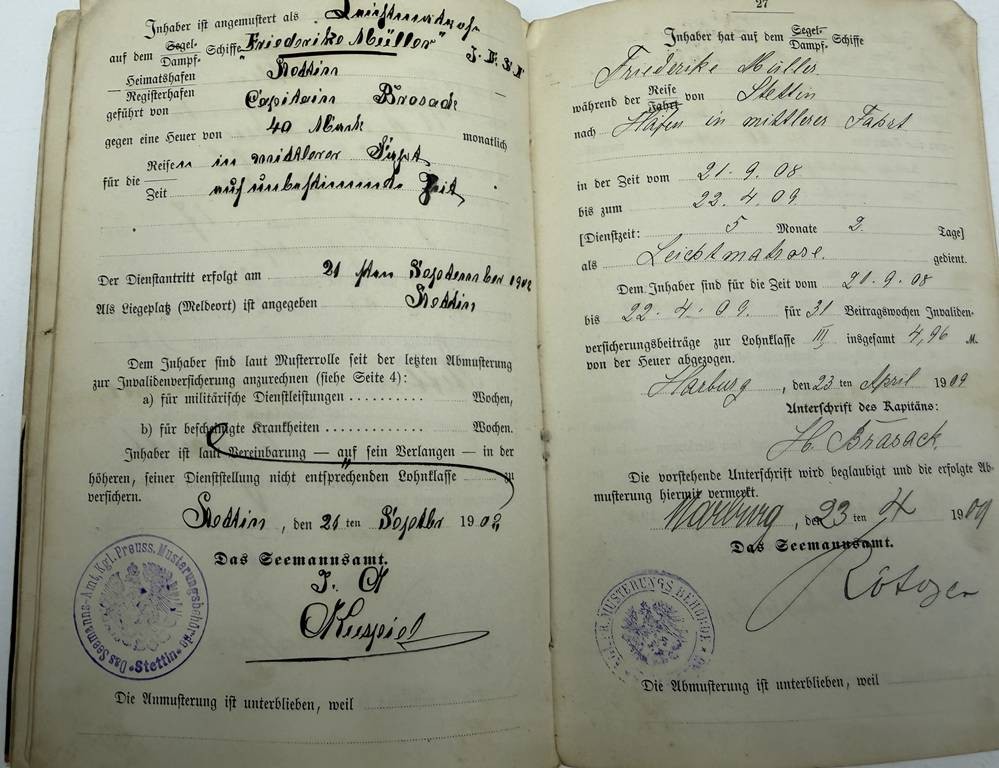 Inhaber ist angemustert als Leichtmatrose
auf dem Segel- Dampf- Schiffe "Friederike Müller"
Heimatshafen
Registerhafen Stettin
geführt von Capitain Brasack
gegen eine Heuer von 40 Mark monatlich
für die Reisen in mittlerer Fahrt
Zeit auf unbestimmte Zeit
Der Dienstantritt erfolgt am 21 ten September 1908
Als Liegeplatz (Meldeort) ist angegeben Stettin
Dem Inhaber sind laut Musterrolle seit der letzten Abmusterung
zur Invalidenversicherung anzurechnen (siehe Seite 4):
a) für militärische Dienstleistungen .......... Wochen,
b) für bescheinigte Krankheiten ............ Wochen.
Inhaber ist laut Vereinbarung — auf sein Verlangen — in der
höheren, seiner Dienststellung nicht entsprechenden Lohnklasse zu
versichern.
Stettin, den 21 ten Septbr 1908
Das Seemannsamt.
Das Seemanns-Amt, Kgl. Preuss. Musterungsbehörde Stettin
Die Anmusterung ist unterblieben, weil
27
Inhaber hat auf dem Segel- Dampf- Schiffe
Friederike Müller
während der Reise Fahrt von Stettin
nach Häfen in mittlerer Fahrt
in der Zeit vom 21. 9. 08
bis zum 22. 4. 09
[Dienstzeit: 5 Monate 2 Tage]
als Leichtmatrose. gedient.
Dem Inhaber sind für die Zeit vom 21. 9. 08
bis 22. 4. 09. für 31 Beitragswochen Invaliden-
versicherungsbeiträge zur Lohnklasse III insgesamt 4,96 M.
von der Heuer abgezogen.
Harburg, den 23 ten April 1909
Unterschrift des Kapitäns:
H. Brasack
Die vorstehende Unterschrift wird beglaubigt und die erfolgte Ab-
musterung hiermit vermerkt.
Harburg, den 23 ten 4 1909
Das Seemannsamt.
MUSTERUNGS BEHÖRDE
Die Abmusterung ist unterblieben, weil